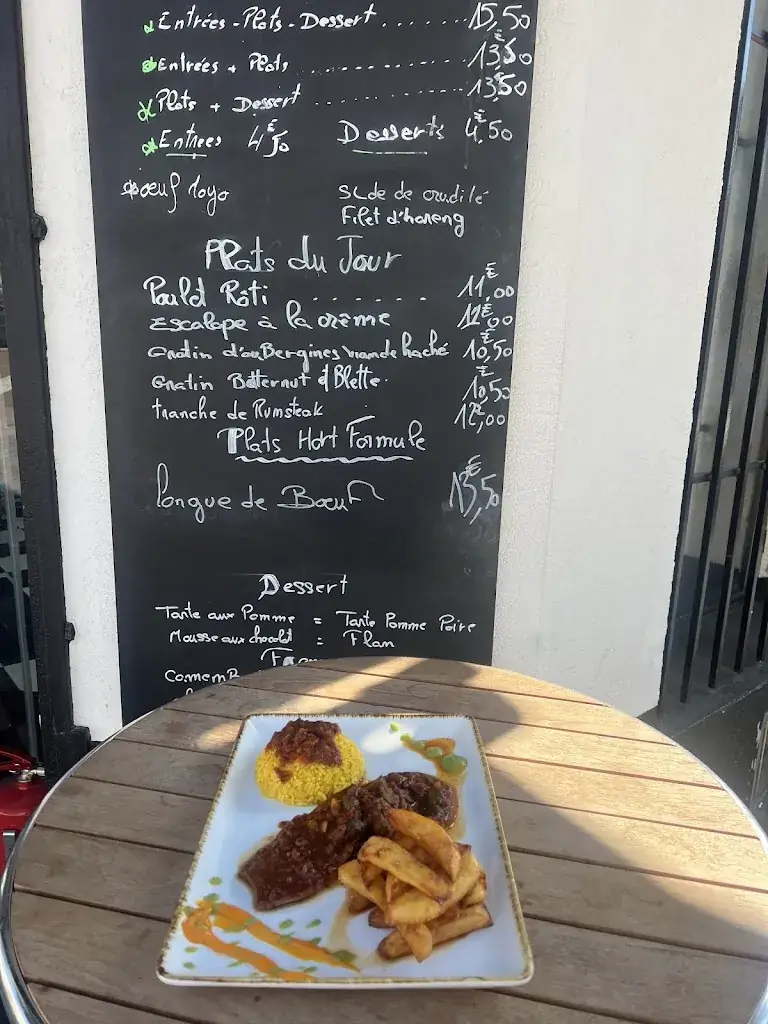 Entrées - Plats - Dessert ....... 15,50
Entrées + Plats ............ 13,50€
Plats + Dessert ............ 13,50€
Entrées 4€50 Desserts 4€,50
Oeuf Mayo
Salde de crudité
Filet d'hareng
Plats du Jour
Poulet Rôti ....... 11€,00
Escalope à la crème 12€,00
Gratin d'auBergines viande haché 10€,50
Gratin Butternut & Blette. 10€,50
tranche de Rumsteak 12€,00
Plats Hort Formule
Langue de Bœuf 13€,50
Dessert
Tarte aux Pomme = Tarte Pomme Poire
Mousse au chocolat = Flan